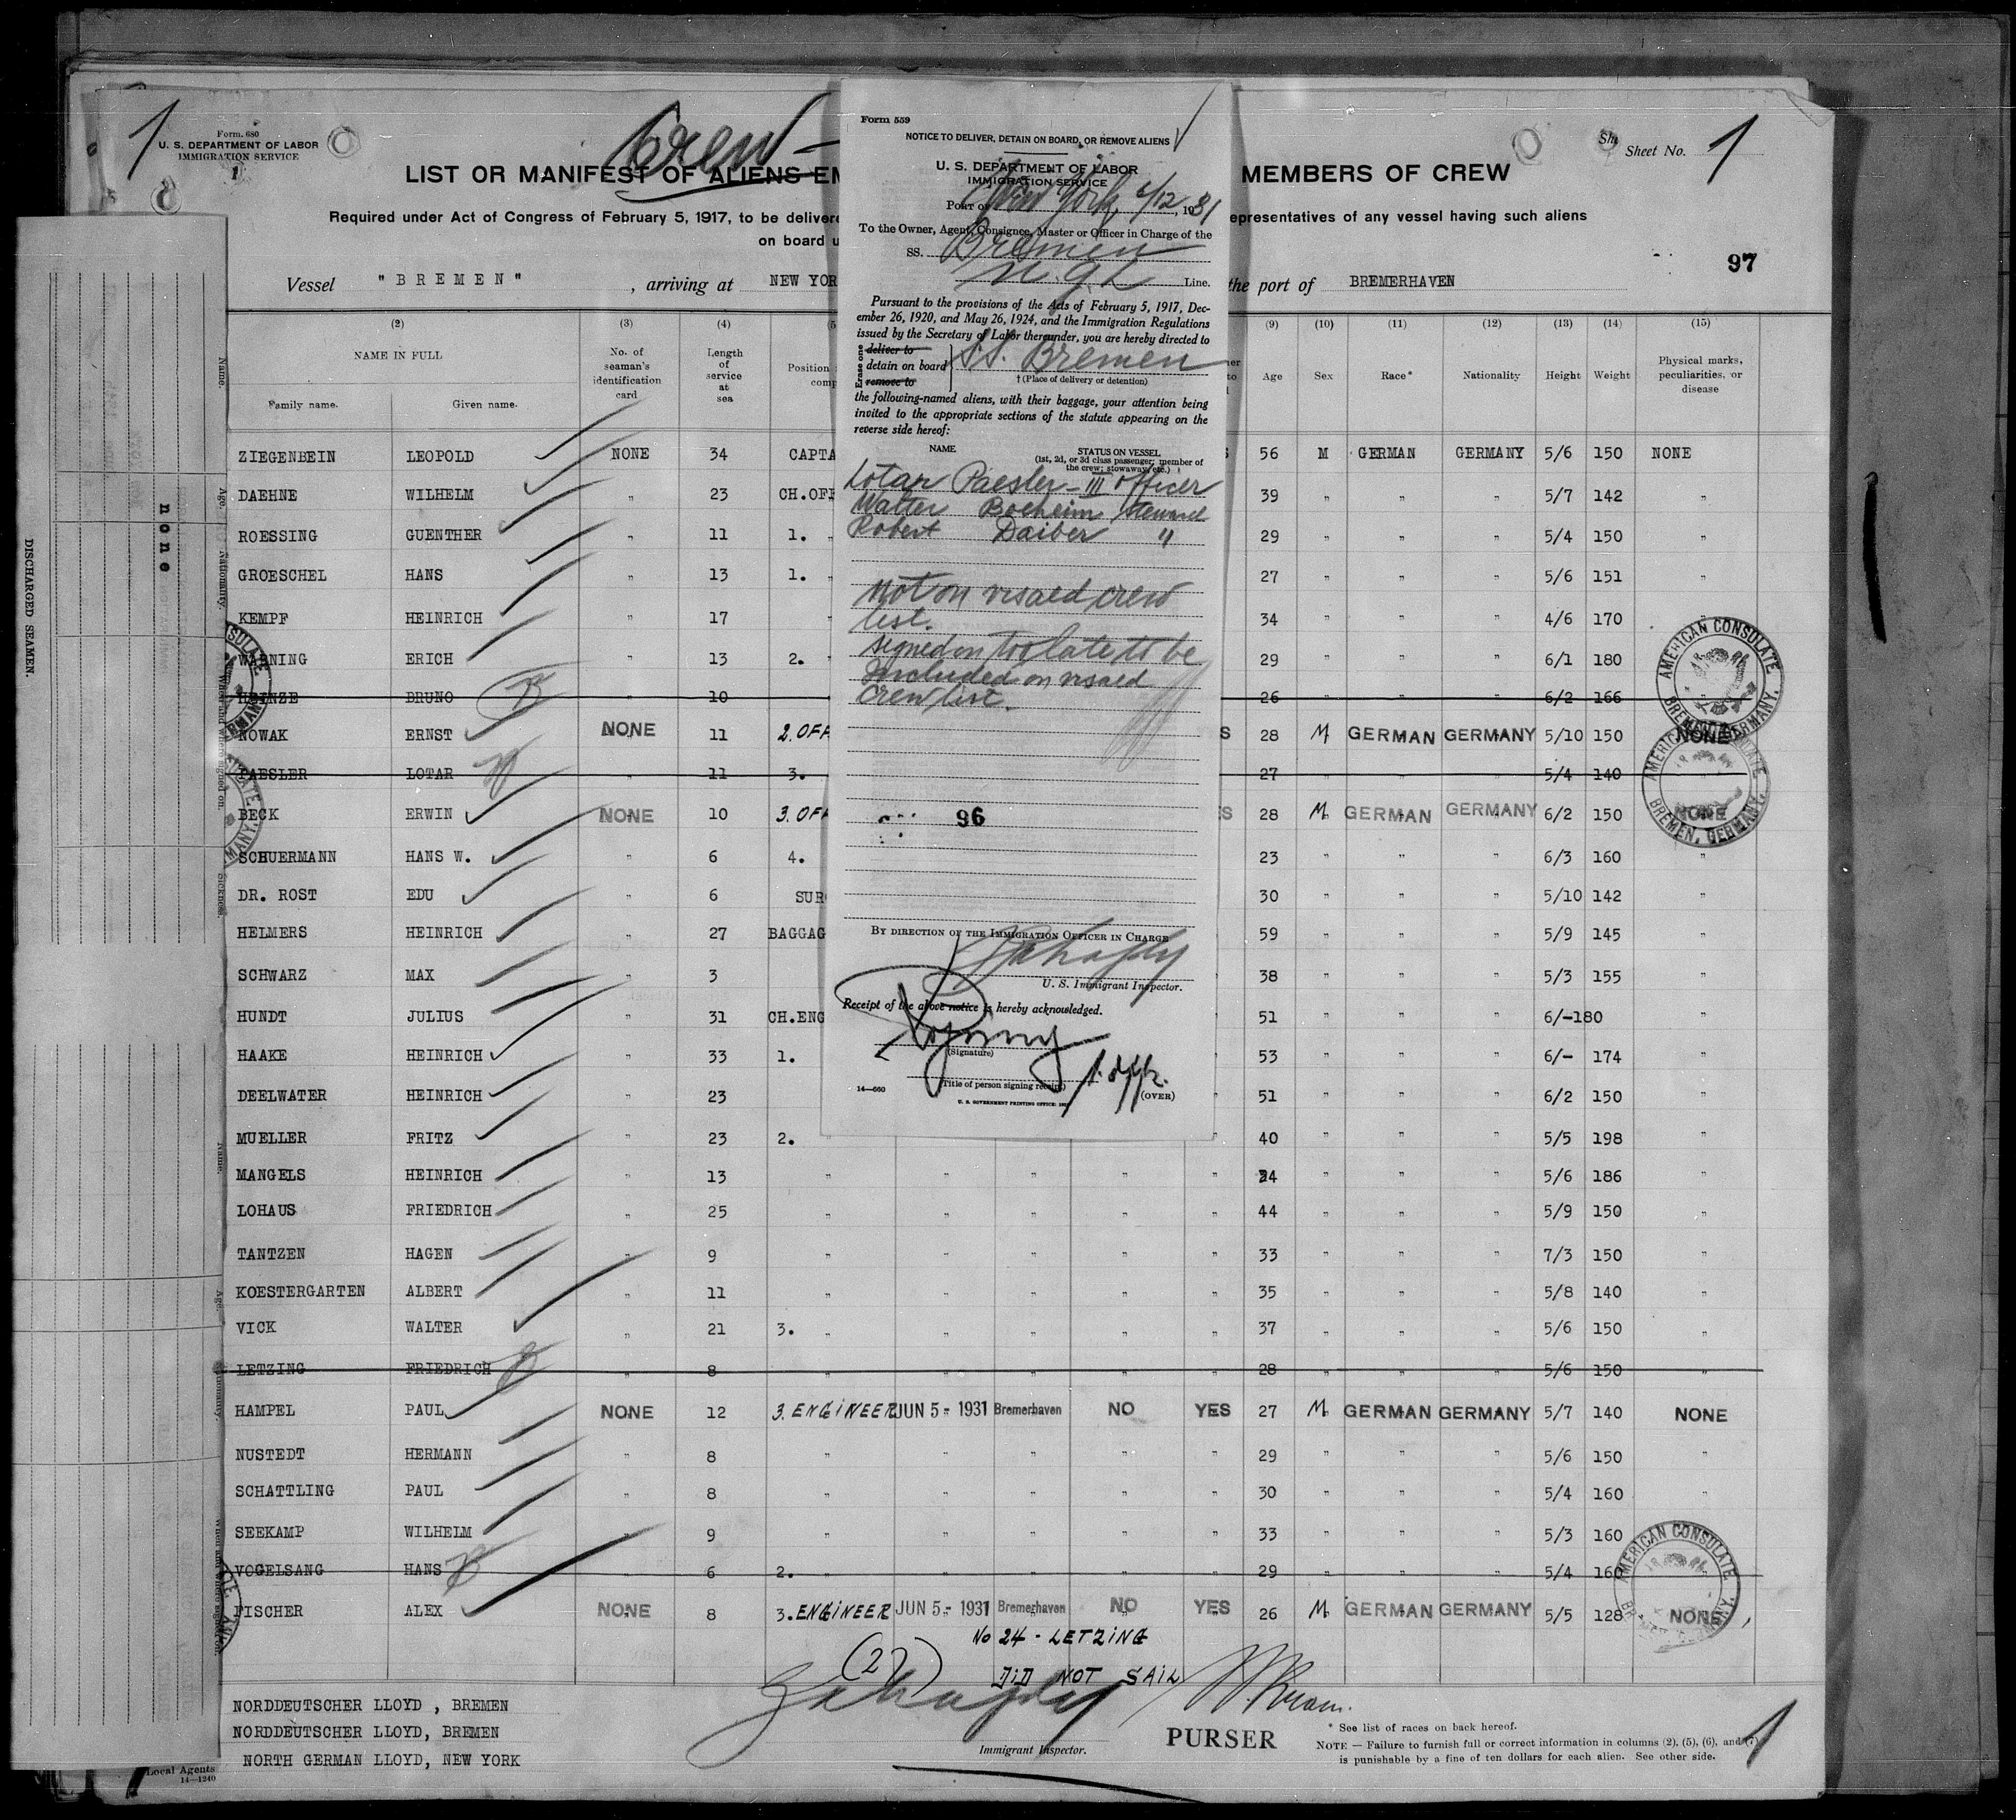 1
Form. 680
U. S. DEPARTMENT OF LABOR
IMMIGRATION SERVICE
1
Crew
LIST OR MANIFEST OF ALIENS EM
MEMBERS OF CREW
Sheet No. 1
Required under Act of Congress of February 5, 1917, to be delivere
epresentatives of any vessel having such aliens
on board u
97
Vessel "BREMEN", arriving at NEW YOR
the port of BREMERHAVEN
(2) (3) (4) (5
(9) (10) (11) (12) (13) (14) (15)
NAME IN FULL
Family name. Given name.
No. of seaman's identification card
Length of service at sea
Position
comp
Age Sex Race* Nationality Height Weight Physical marks, peculiarities, or disease
ZIEGENBEIN LEOPOLD NONE 34 CAPTA S 56 M GERMAN GERMANY 5/6 150 NONE
DAEHNE WILHELM " 23 CH.OFF 39 " " " 5/7 142 "
ROESSING GUENTHER " 11 1. " 29 " " " 5/4 150 "
GROESCHEL HANS " 13 1. " 27 " " " 5/6 151 "
KEMPF HEINRICH " 17 " 34 " " " 4/6 170 "
WARNING ERICH " 13 2. " 29 " " " 6/1 180
HEINZE BRUNO " 10 26 6/2 166
NOWAK ERNST NONE 11 2.OFF S 28 M GERMAN GERMANY 5/10 150 NONE
PAESLER LOTAR " 11 3. 27 5/4 140 "
BECK ERWIN NONE 10 3.OFF ES 28 M GERMAN GERMANY 6/2 150 NONE
SCHUERMANN HANS W. " 6 4. 23 " " " 6/3 160 "
DR. ROST EDU " 6 SUR 30 " " " 5/10 142 "
HELMERS HEINRICH " 27 BAGGAG 59 " " " 5/9 145 "
SCHWARZ MAX " 3 38 " " " 5/3 155 "
HUNDT JULIUS " 31 CH.ENG 51 " " " 6/-180 "
HAAKE HEINRICH " 33 1. 53 " " " 6/- 174 "
DEELWATER HEINRICH " 23 " 51 " " " 6/2 150 "
MUELLER FRITZ " 23 2. " 40 " " " 5/5 198 "
MANGELS HEINRICH " 13 " " " " " 34 " " " 5/6 186 "
LOHAUS FRIEDRICH " 25 " " " " " 44 " " " 5/9 150 "
TANTZEN HAGEN " 9 " " " " " 33 " " " 7/3 150 "
KOESTERGARTEN ALBERT " 11 " " " " " 35 " " " 5/8 140 "
VICK WALTER " 21 3. " " " " " 37 " " " 5/6 150 "
LETZING FRIEDRICH " 8 " " " " " 28 " " " 5/6 150 "
HAMPEL PAUL NONE 12 3. ENGINEER JUN 5- 1931 Bremerhaven NO YES 27 M GERMAN GERMANY 5/7 140 NONE
NUSTEDT HERMANN " 8 " " " " " 29 " " " 5/6 150 "
SCHATTLING PAUL " 8 " " " " " 30 " " " 5/4 160 "
SEEKAMP WILHELM " 9 " " " " " 33 " " " 5/3 160
VOGELSANG HANS 6 2. " " " " " 29 " " " 5/4 160
FISCHER ALEX NONE 8 3. ENGINEER JUN 5- 1931 Bremerhaven NO YES 26 M GERMAN GERMANY 5/5 128 NONE
No 24 - LETZING
DID NOT SAIL
(2)
NORDDEUTSCHER LLOYD , BREMEN
NORDDEUTSCHER LLOYD, BREMEN
NORTH GERMAN LLOYD, NEW YORK
Local Agents
14—1240
Immigrant Inspector.
PURSER
* See list of races on back hereof.
NOTE — Failure to furnish full or correct information in columns (2), (5), (6), and (7)
is punishable by a fine of ten dollars for each alien. See other side.
1
Form 559
NOTICE TO DELIVER, DETAIN ON BOARD, OR REMOVE ALIENS
U. S. DEPARTMENT OF LABOR
IMMIGRATION SERVICE
Port of New York, 6/12, 1931
To the Owner, Agent, Consignee, Master or Officer in Charge of the
SS. Bremen
N.G.L Line.
Pursuant to the provisions of the Acts of February 5, 1917, Dec-
ember 26, 1920, and May 26, 1924, and the Immigration Regulations
issued by the Secretary of Labor thereunder, you are hereby directed to
Erase one
deliver to
detain on board
remove to
S.S. Bremen
† (Place of delivery or detention)
the following-named aliens, with their baggage, your attention being
invited to the appropriate sections of the statute appearing on the
reverse side hereof:
NAME
STATUS ON VESSEL
(1st, 2d, or 3d class passenger; member of
the crew; stowaway, etc.)
Lotar Paesler - III officer
Walter Boeheim Steward
Robert Daiber "
Not on visaed crew
list.
Signed on too late to be
Included on visaed
crew list.
96
BY DIRECTION OF THE IMMIGRATION OFFICER IN CHARGE
U. S. Immigrant Inspector.
Receipt of the above notice is hereby acknowledged.
(Signature)
(Title of person signing receipt)
14—660
(OVER)
U. S. GOVERNMENT PRINTING OFFICE
AMERICAN CONSULATE
BREMEN, GERMANY.
AMERICAN CONSULATE
BREMEN, GERMANY.
AMERICAN CONSULATE
DISCHARGED SEAMEN.
none
Name.
Age.
Nationality.
When and where signed on.
Sickness.
Name.
Age.